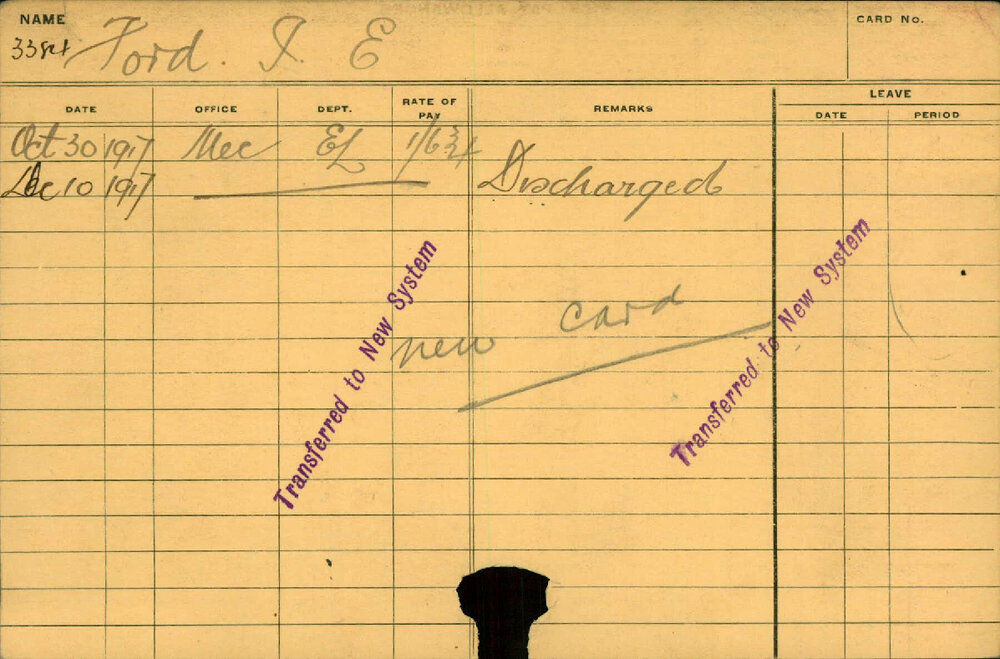 NAME
CARD No.
Ford. I. E
LEAVE
DATE OFFICE DEPT. RATE OF PAY REMARKS DATE PERIOD
Oct 30 1917 Mec EL 1/6 3/4
Dec 10 1917 Discharged
new card
Transferred to New System
Transferred to New System